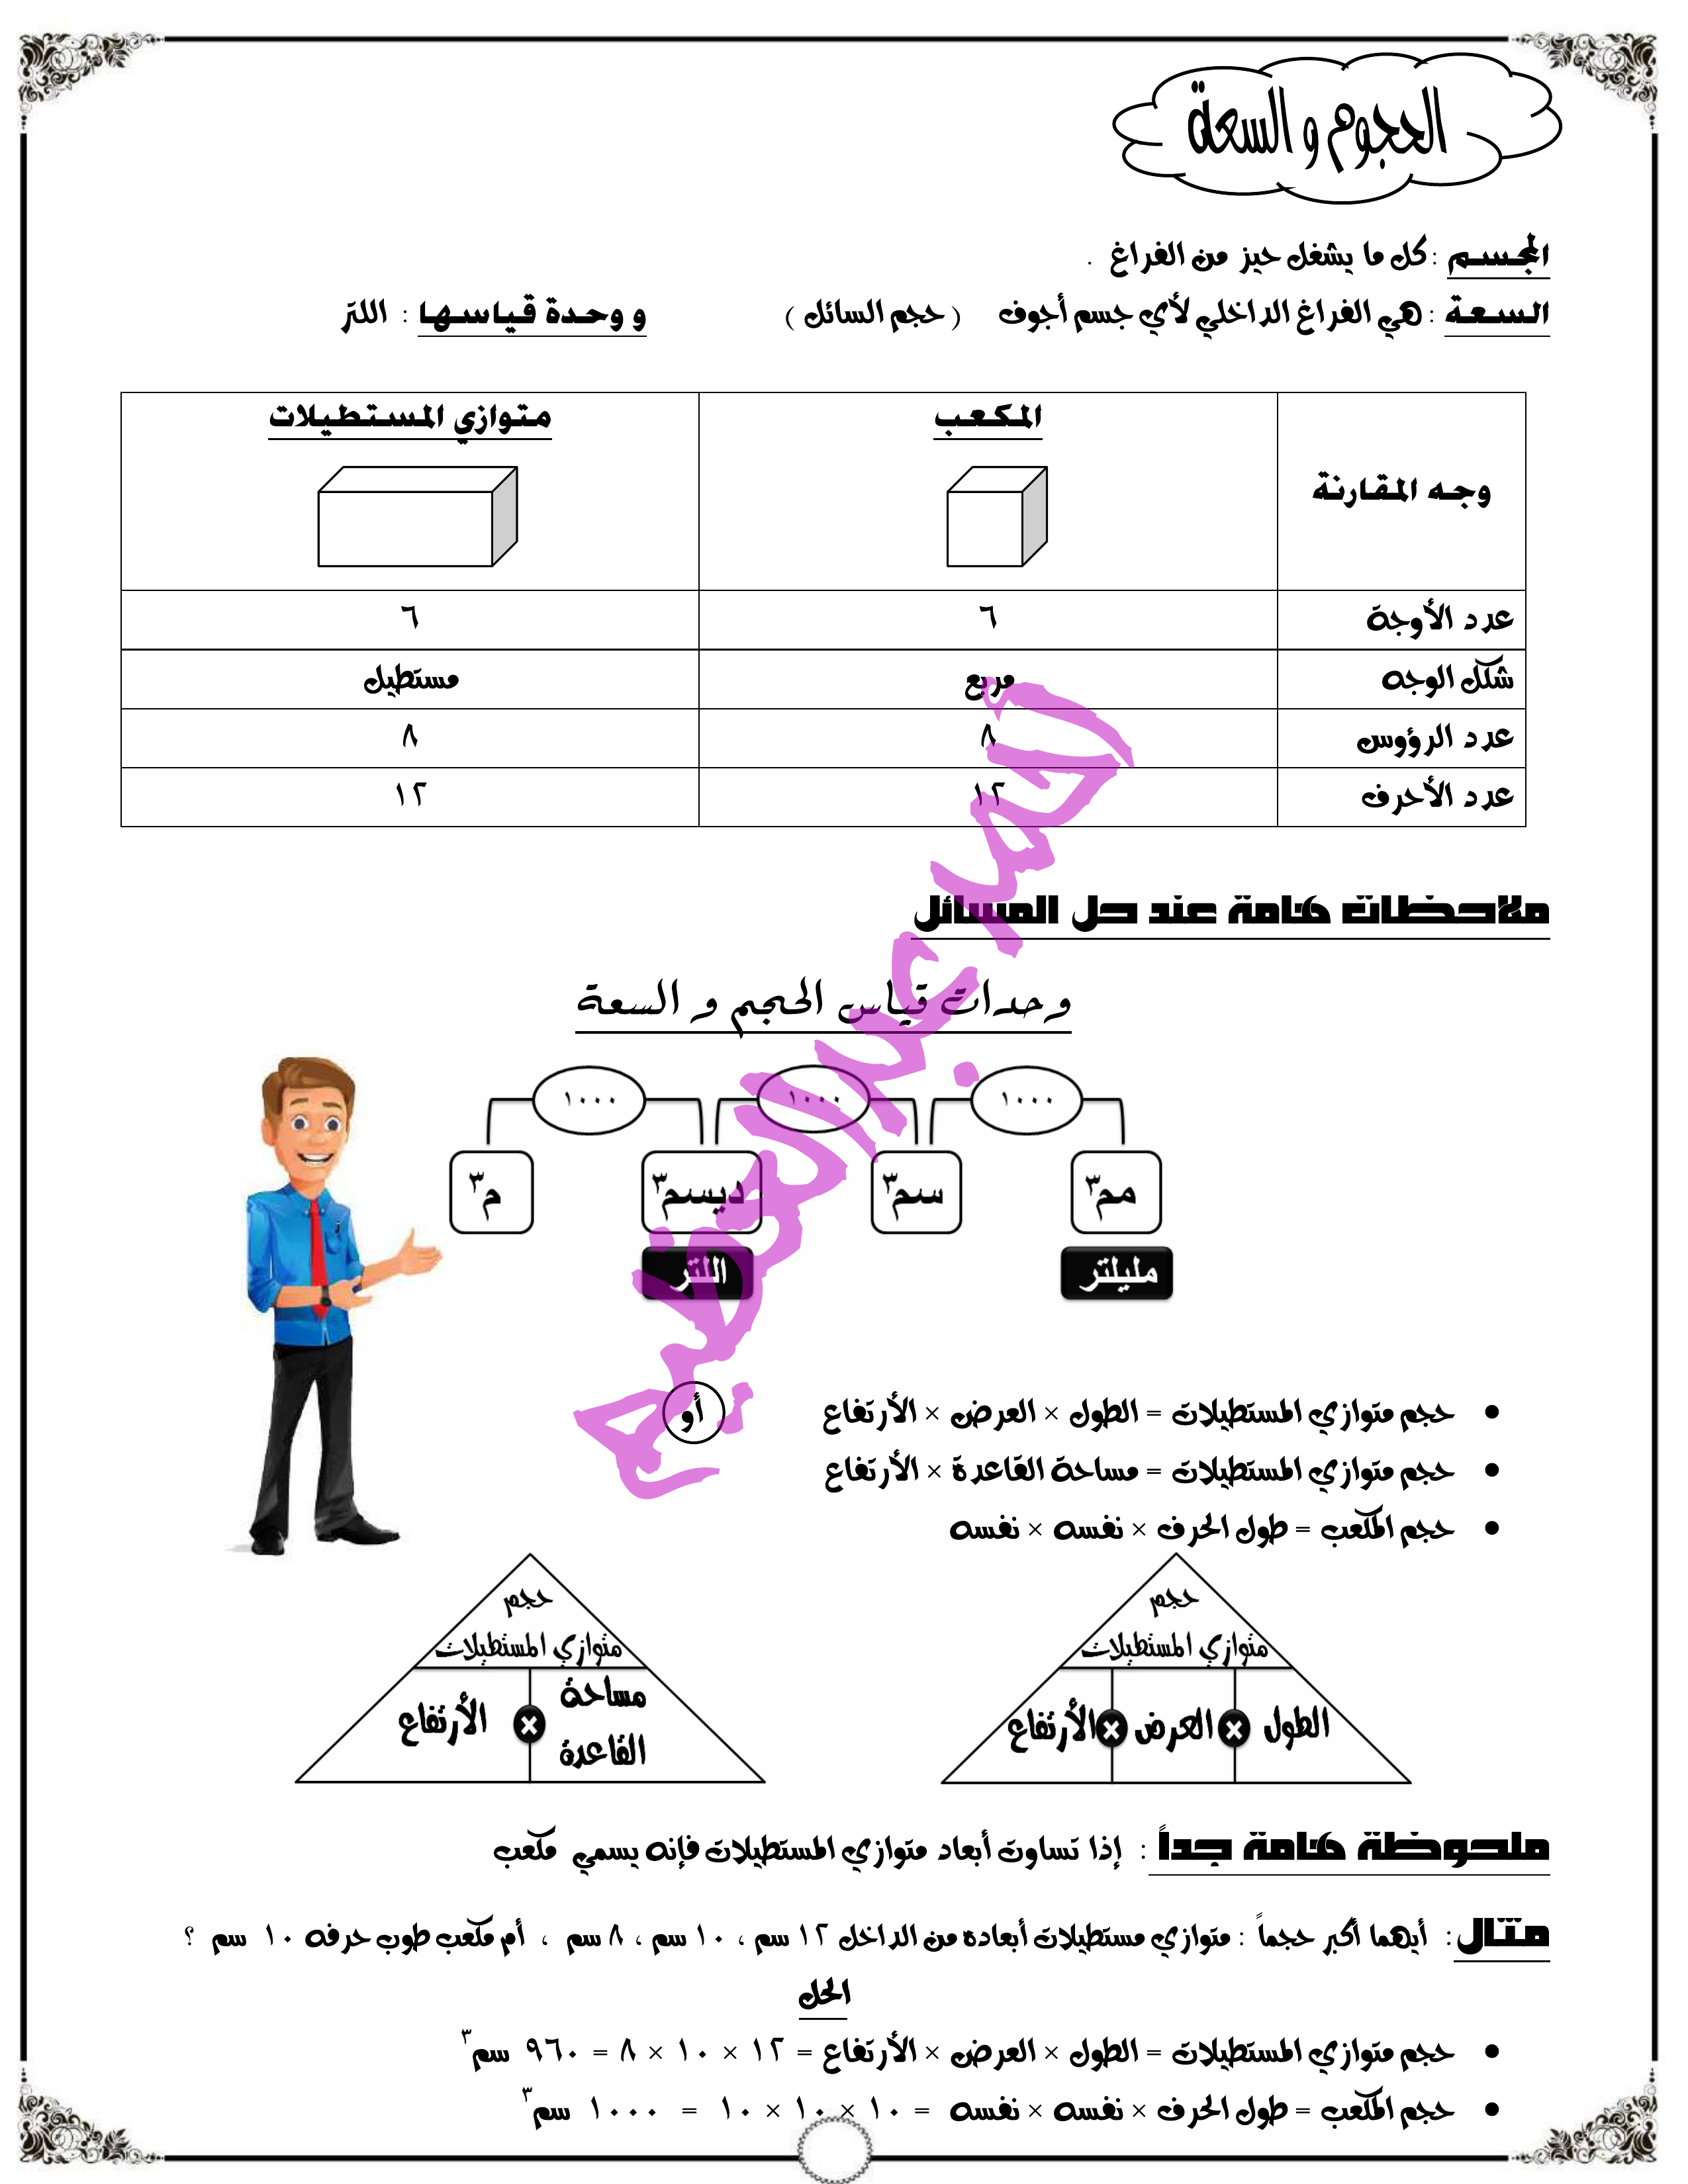 الحجوم و السعة
الجسم : كل ما يشغل حيز من الفراغ .
السعة : هي الفراغ الداخلي لأي جسم أجوف ( حجم السائل ) و وحدة قياسها : اللتر
وجه المقارنة المكعب متوازي المستطيلات
عدد الأوجة ٦ ٦
شكل الوجه مربع مستطيل
عدد الرؤوس ٨ ٨
عدد الأحرف ١٢ ١٢
ملاحظات هامة عند حل المسائل
وحدات قياس الحجم و السعة
١٠٠٠ ١٠٠٠ ١٠٠٠
مم٣ سم٣ ديسم٣ م٣
مليلتر اللتر
حجم متوازي المستطيلات = الطول × العرض × الأرتفاع أو
حجم متوازي المستطيلات = مساحة القاعدة × الأرتفاع
حجم المكعب = طول الحرف × نفسه × نفسه
حجم
متوازي المستطيلات
الطول × العرض × الأرتفاع
حجم
متوازي المستطيلات
مساحة القاعدة × الأرتفاع
ملحوظة هامة جداً : إذا تساوت أبعاد متوازي المستطيلات فإنه يسمي مكعب
مثال : أيهما أكبر حجماً : متوازي مستطيلات أبعاده من الداخل ١٢ سم ، ١٠ سم ، ٨ سم ، أم مكعب طوب حرفه ١٠ سم ؟
الحل
حجم متوازي المستطيلات = الطول × العرض × الأرتفاع = ١٢ × ١٠ × ٨ = ٩٦٠ سم٣
حجم المكعب = طول الحرف × نفسه × نفسه = ١٠ × ١٠ × ١٠ = ١٠٠٠ سم٣